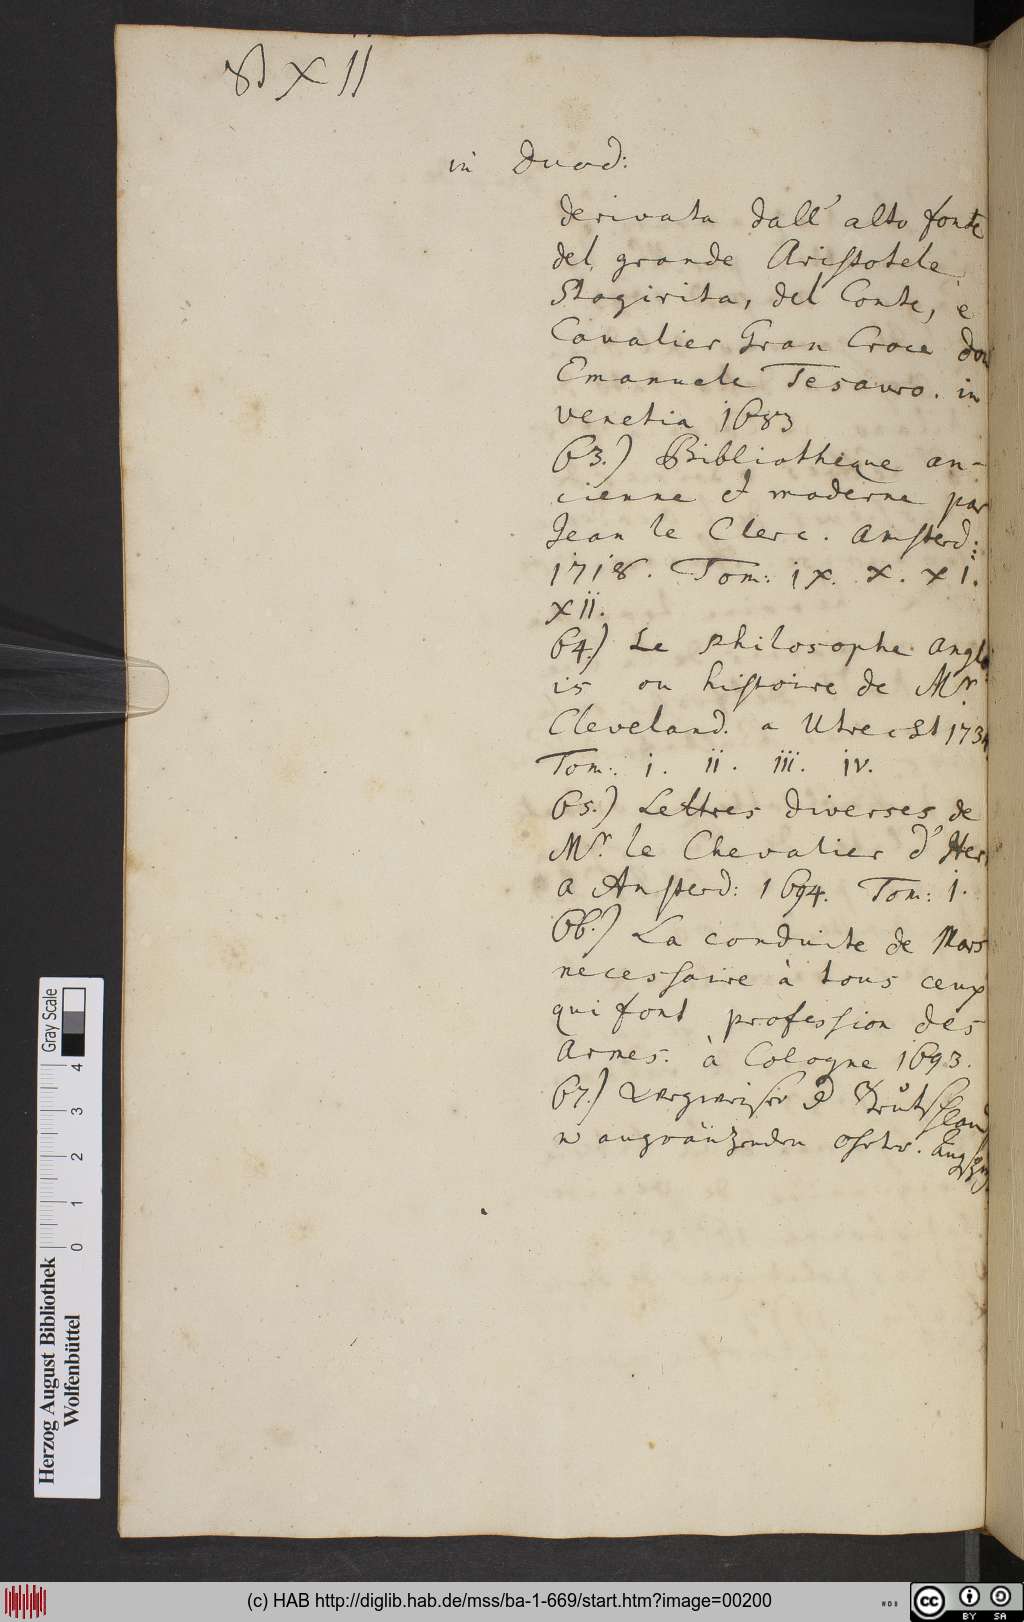 XII
in Duod:
derivata dall' alto fonte
del grande Aristotele
Stagirita, del Conte, e
Cavalier Gran Croce don
Emanuele Tesauro. in
venetia 1683
63.) Bibliotheque an-
cienne et moderne par
Jean le Clerc. Amsterd:
1718. Tom: IX. X. XI.
XII.
64.) Le Philosophe Anglo
is ou histoire de Mr.
Cleveland. a Utrecht 1734
Tom: I. II. III. IV.
65.) Lettres diverses de
Mr. le Chevalier d' Her.
a Amsterd: 1694. Tom: I.
66.) La conduite de Mars
necessaire à tous ceux
qui font profession des
Armes. à Cologne 1693.
67.) Wegweiser d Teutschland
n angränzenden Ohrter.
Gray Scale
0 1 2 3 4
Herzog August Bibliothek
Wolfenbüttel
(c) HAB http://diglib.hab.de/mss/ba-1-669/start.htm?image=00200
cc BY SA